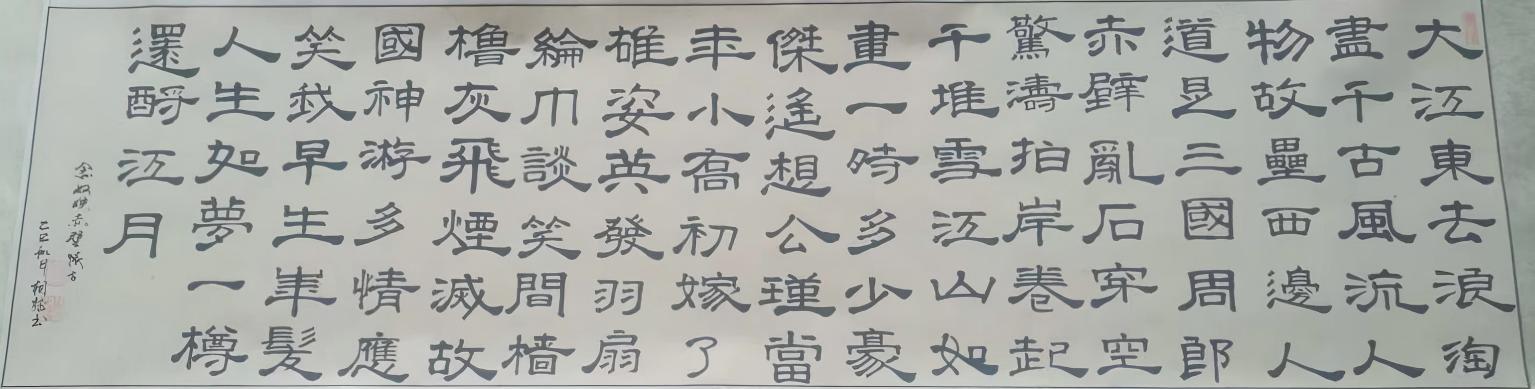 大江東去浪淘
盡千古風流人
物故壘西邊人
道是三國周郎
赤壁亂石穿空
驚濤拍岸卷起
千堆雪江山如
畫一時多少豪
傑遙想公瑾當
年小喬初嫁了
雄姿英發羽扇
綸巾談笑間檣
櫓灰飛煙滅故
國神游多情應
笑我早生華髮
人生如夢一樽
還酹江月
念奴嬌赤壁懷古
乙巳秋日